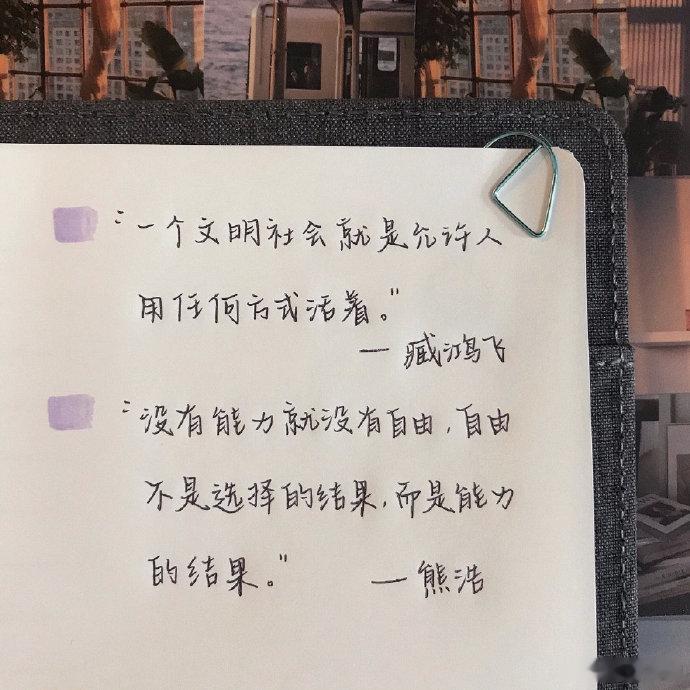 “一个文明社会就是允许人
用任何方式活着。”
— 臧鸿飞
“没有能力就没有自由，自由
不是选择的结果，而是能力
的结果。” — 熊浩